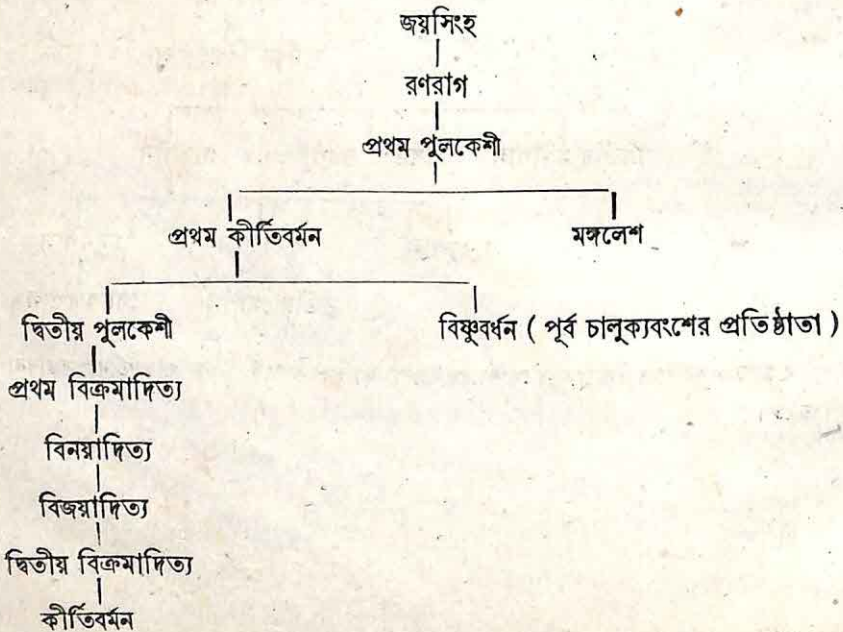 জয়সিংহ
রণরাগ
প্রথম পুলকেশী
প্রথম কীর্তিবর্মন মঙ্গলেশ
দ্বিতীয় পুলকেশী বিষ্ণুবর্ধন ( পূর্ব চালুক্যবংশের প্রতিষ্ঠাতা )
প্রথম বিক্রমাদিত্য
বিনয়াদিত্য
বিজয়াদিত্য
দ্বিতীয় বিক্রমাদিত্য
কীর্তিবর্মন